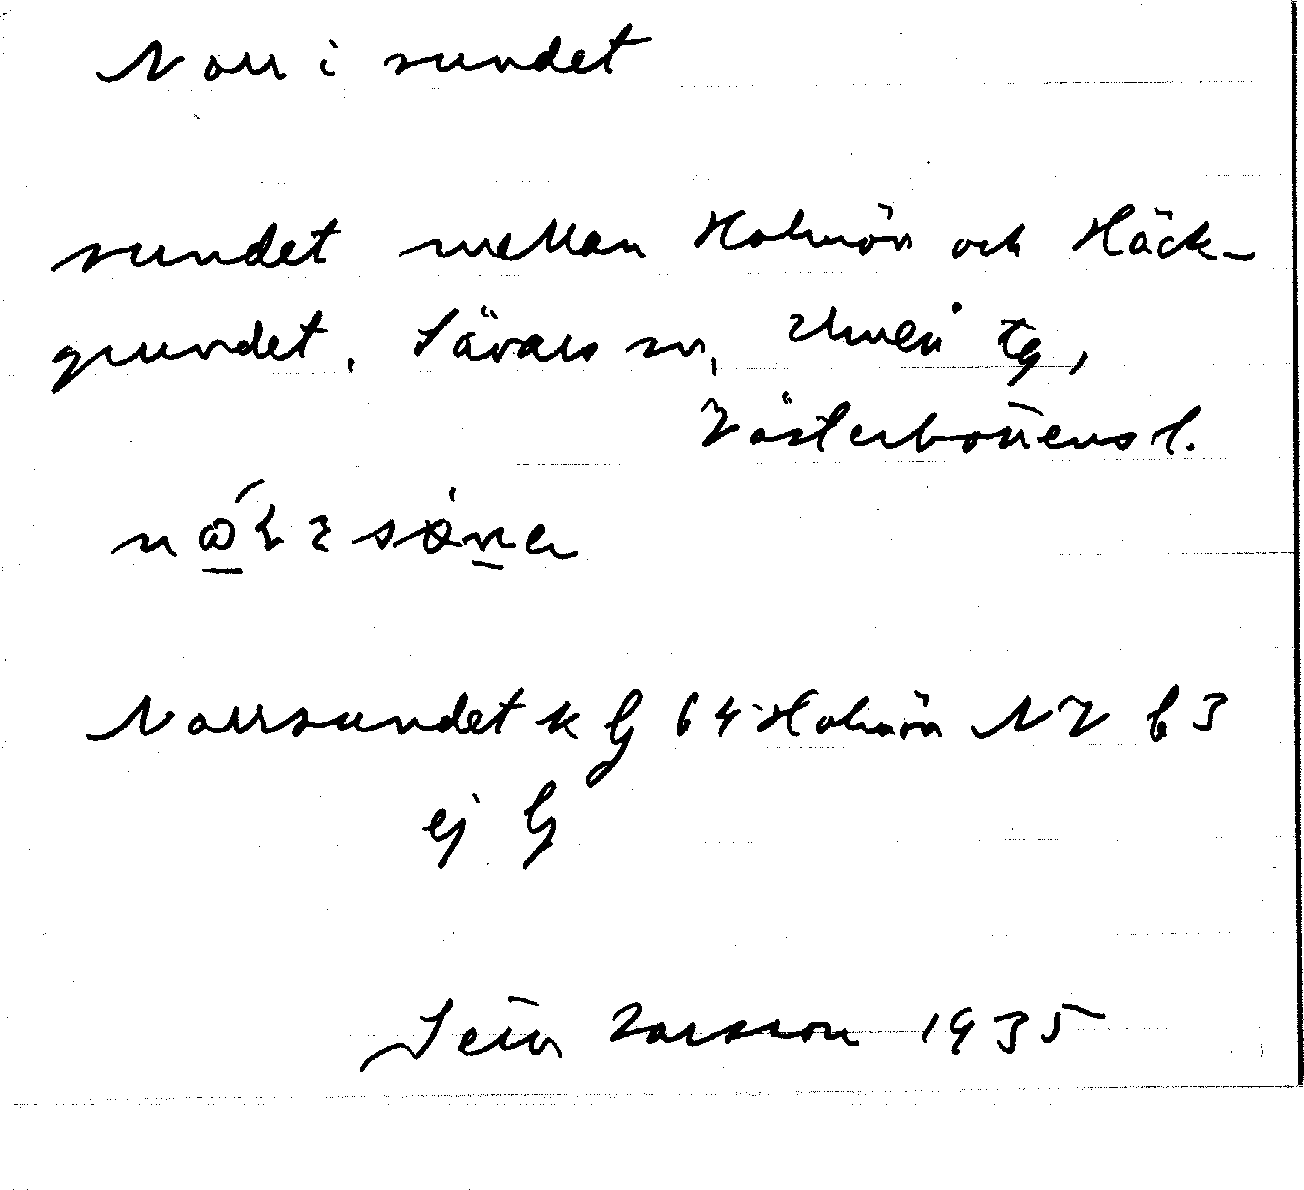 Norr i sundet
sundet mellan Holmön och Häck-
grundet, Sävars sn, Umeå tg,
Västerbottens l.
Norrsundet k G 64 Holmön NV b3
ej G
Larsson 1935